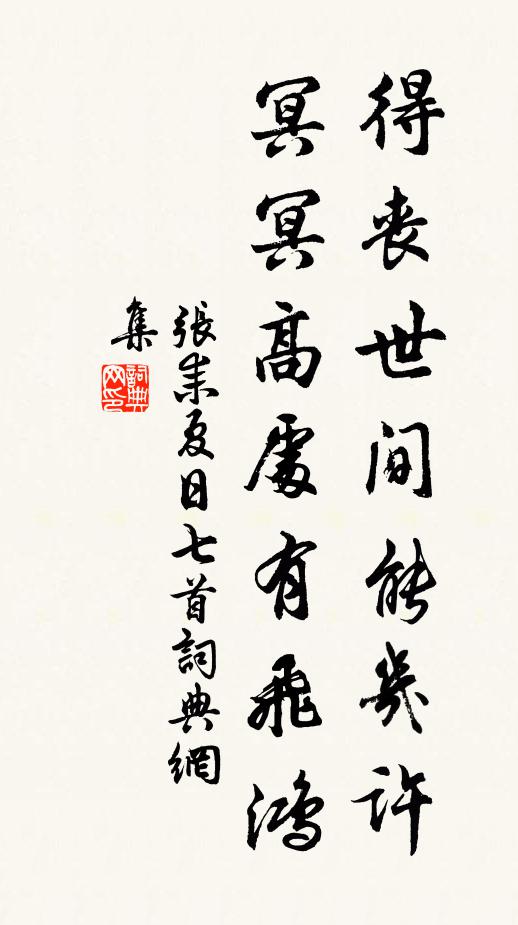 得喪世間能幾許
冥冥高處有飛鴻
張耒夏日七首詞典網
集
詞典
网印